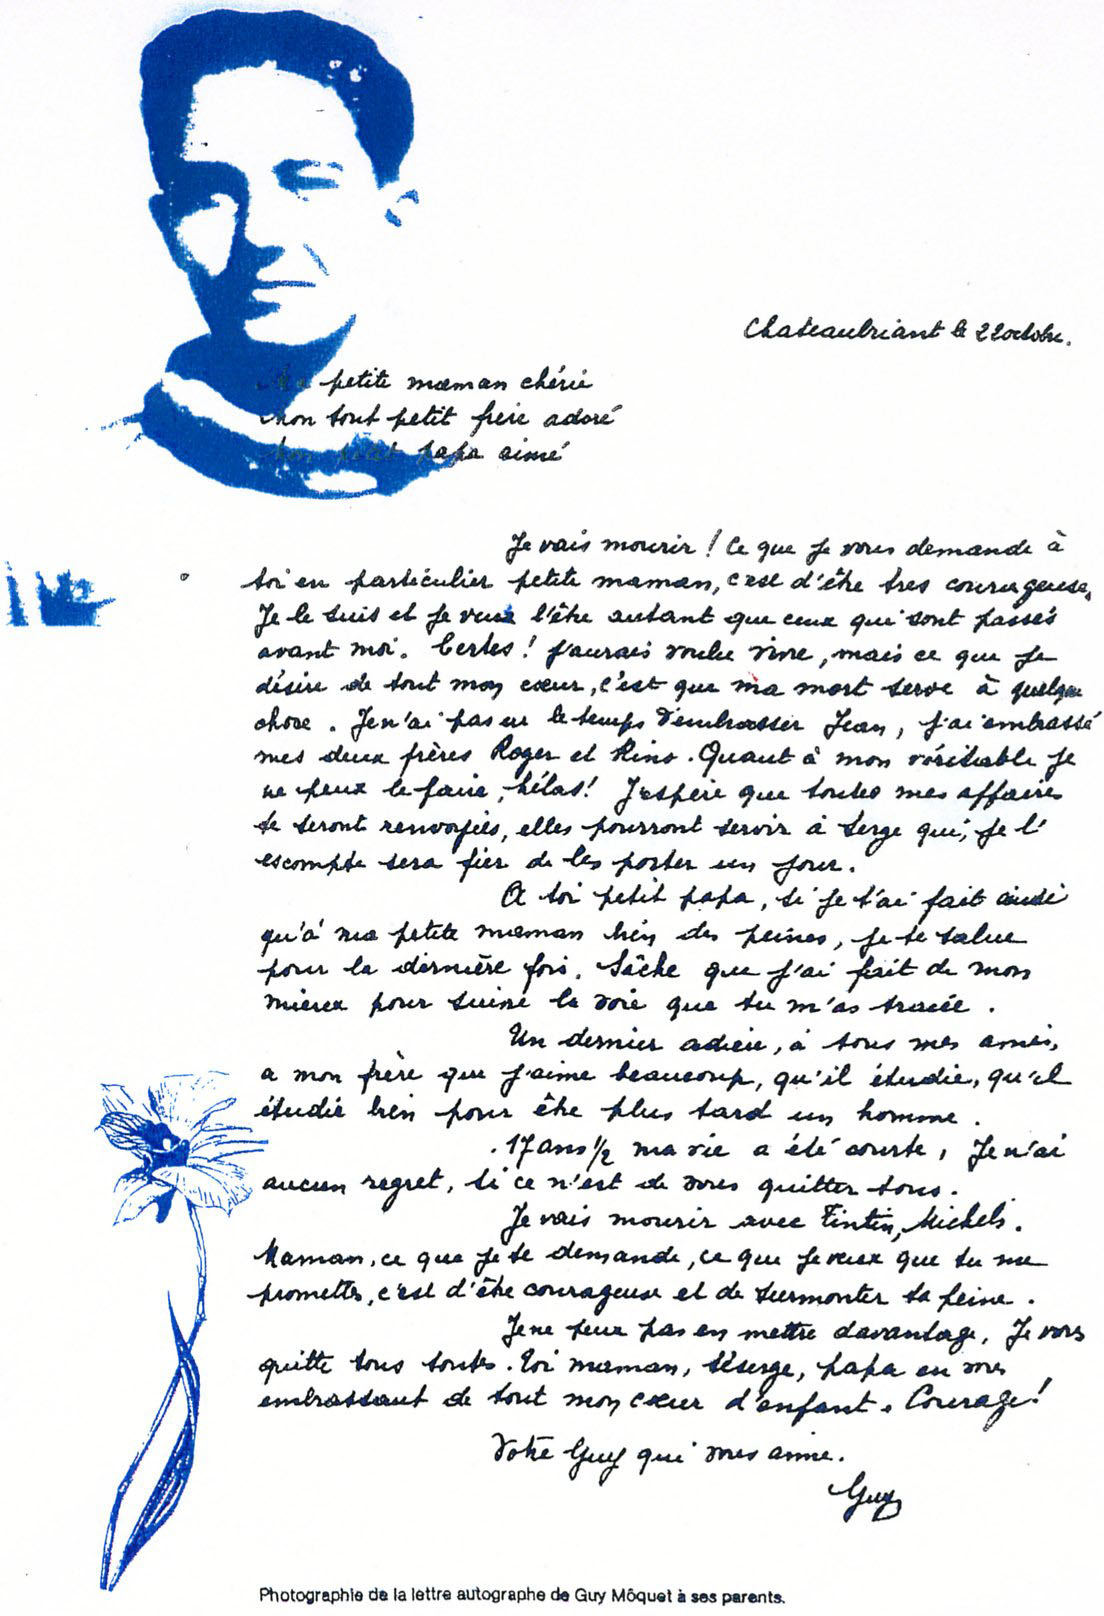 Chateaubriant le 22 octobre.
Ma petite maman chérie
mon tout petit frère adoré
mon petit papa aimé
Je vais mourir ! Ce que je vous demande à
toi en particulier petite maman, c'est d'être très courageuse.
Je le suis et je veux l'être autant que ceux qui sont passés
avant moi. Certes ! j'aurais voulu vivre, mais ce que je
désire de tout mon cœur, c'est que ma mort serve à quelque
chose. Je n'ai pas eu le temps d'embrasser Jean, j'ai embrassé
mes deux frères Roger et Rino. Quant à mon véritable je
ne peux le faire, hélas! J'espère que toutes mes affaires
te seront renvoyées, elles pourront servir à Serge qui, je l'
escompte sera fier de les porter un jour.
A toi petit papa, si je t'ai fait ainsi
qu'à ma petite maman bien des peines, je te salue
pour la dernière fois. Sache que j'ai fait de mon
mieux pour suivre la voie que tu m'as tracée.
Un dernier adieu, à tous mes amis,
a mon frère que j'aime beaucoup, qu'il étudie, qu'il
étudie bien pour être plus tard un homme.
.17 ans 1/2 ma vie a été courte, Je n'ai
aucun regret, si ce n'est de vous quitter tous.
Je vais mourir avec Tintin, Michels.
Maman, ce que je te demande, ce que je veux que tu me
promettes, c'est d'être courageuse et de surmonter ta peine.
Je ne peux pas en mettre davantage. Je vous
quitte tous toutes. Toi maman, Séserge, papa en vous
embrassant de tout mon cœur d'enfant. Courage!
Votre Guy qui vous aime.
Guy
Photographie de la lettre autographe de Guy Môquet à ses parents.